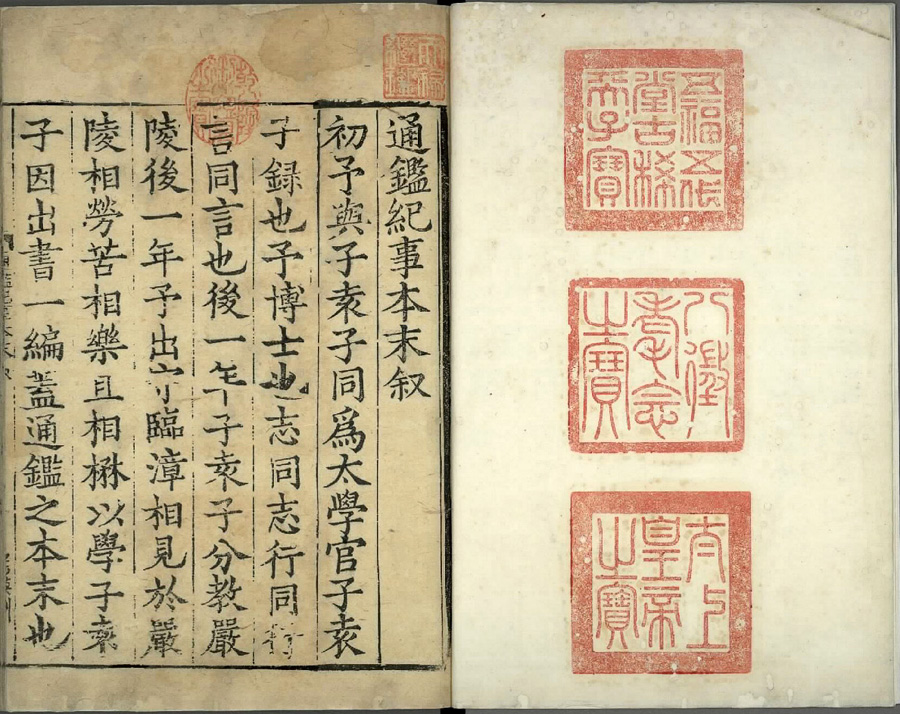 五福五代
堂古稀
天子寶
八徵
耄念
之寶
太上
皇帝
之寶
天祿
繼鑑
乾隆
御覽
之寶
通鑑紀事本末叙
初予與子袁子同爲太學官子袁
子録也予博士也志同志行同行
言同言也後一年子袁子分教嚴
陵後一年予出守臨漳相見於嚴
陵相勞苦相樂且相楙以學子袁
子因出書一編蓋通鑑之本末也